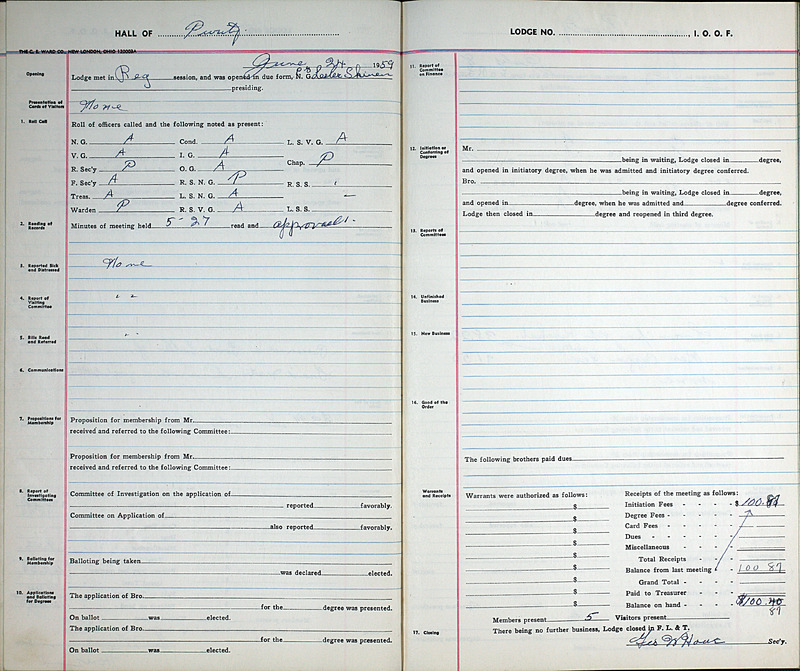 HALL OF Purity
THE C. E. WARD CO., NEW LONDON, OHIO 132003A
June 24 1959
Opening
Lodge met in Reg session, and was opened in due form, N. G. Lester
presiding.
Presentation of Cards of Visitors
None
1. Roll Call
Roll of officers called and the following noted as present:
N. G. A Cond. A L. S. V. G. A
V. G. A I. G. A Chap. P
R. Sec'y P O. G. A
F. Sec'y A R. S. N. G. P R. S. S. '
Treas. A L. S. N. G. A —
Warden P R. S. V. G. A L. S. S.
2. Reading of Records
Minutes of meeting held 5-27 read and approved.
3. Reported Sick and Distressed
None
4. Report of Visiting Committee
" "
5. Bills Read and Referred
" "
6. Communications
7. Propositions for Membership
Proposition for membership from Mr.
received and referred to the following Committee:
Proposition for membership from Mr.
received and referred to the following Committee:
8. Report of Investigating Committees
Committee of Investigation on the application of
reported favorably.
Committee on Application of
also reported favorably.
9. Balloting for Membership
Balloting being taken
was declared elected.
10. Applications and Balloting for Degrees
The application of Bro.
for the degree was presented.
On ballot was elected.
The application of Bro.
for the degree was presented.
On ballot was elected.
LODGE NO. , I. O. O. F.
11. Report of Committee on Finance
12. Initiation or Conferring of Degrees
Mr.
being in waiting, Lodge closed in degree,
and opened in initiatory degree, when he was admitted and initiatory degree conferred.
Bro.
being in waiting, Lodge closed in degree,
and opened in degree, when he was admitted and degree conferred.
Lodge then closed in degree and reopened in third degree.
13. Reports of Committees
14. Unfinished Business
15. New Business
16. Good of the Order
The following brothers paid dues
Warrants and Receipts
Warrants were authorized as follows:
$
$
$
$
$
$
$
$
$
Receipts of the meeting as follows:
Initiation Fees - - - - $ 100.87
Degree Fees - - - - -
Card Fees - - - -
Dues - - - - -
Miscellaneous - - - -
Total Receipts - -
Balance from last meeting - 100 87
Grand Total - - -
Paid to Treasurer - - -
Balance on hand - - - $100.40
87
Members present 5 Visitors present
17. Closing
There being no further business, Lodge closed in F. L. & T.
Geo W Houc Sec'y.